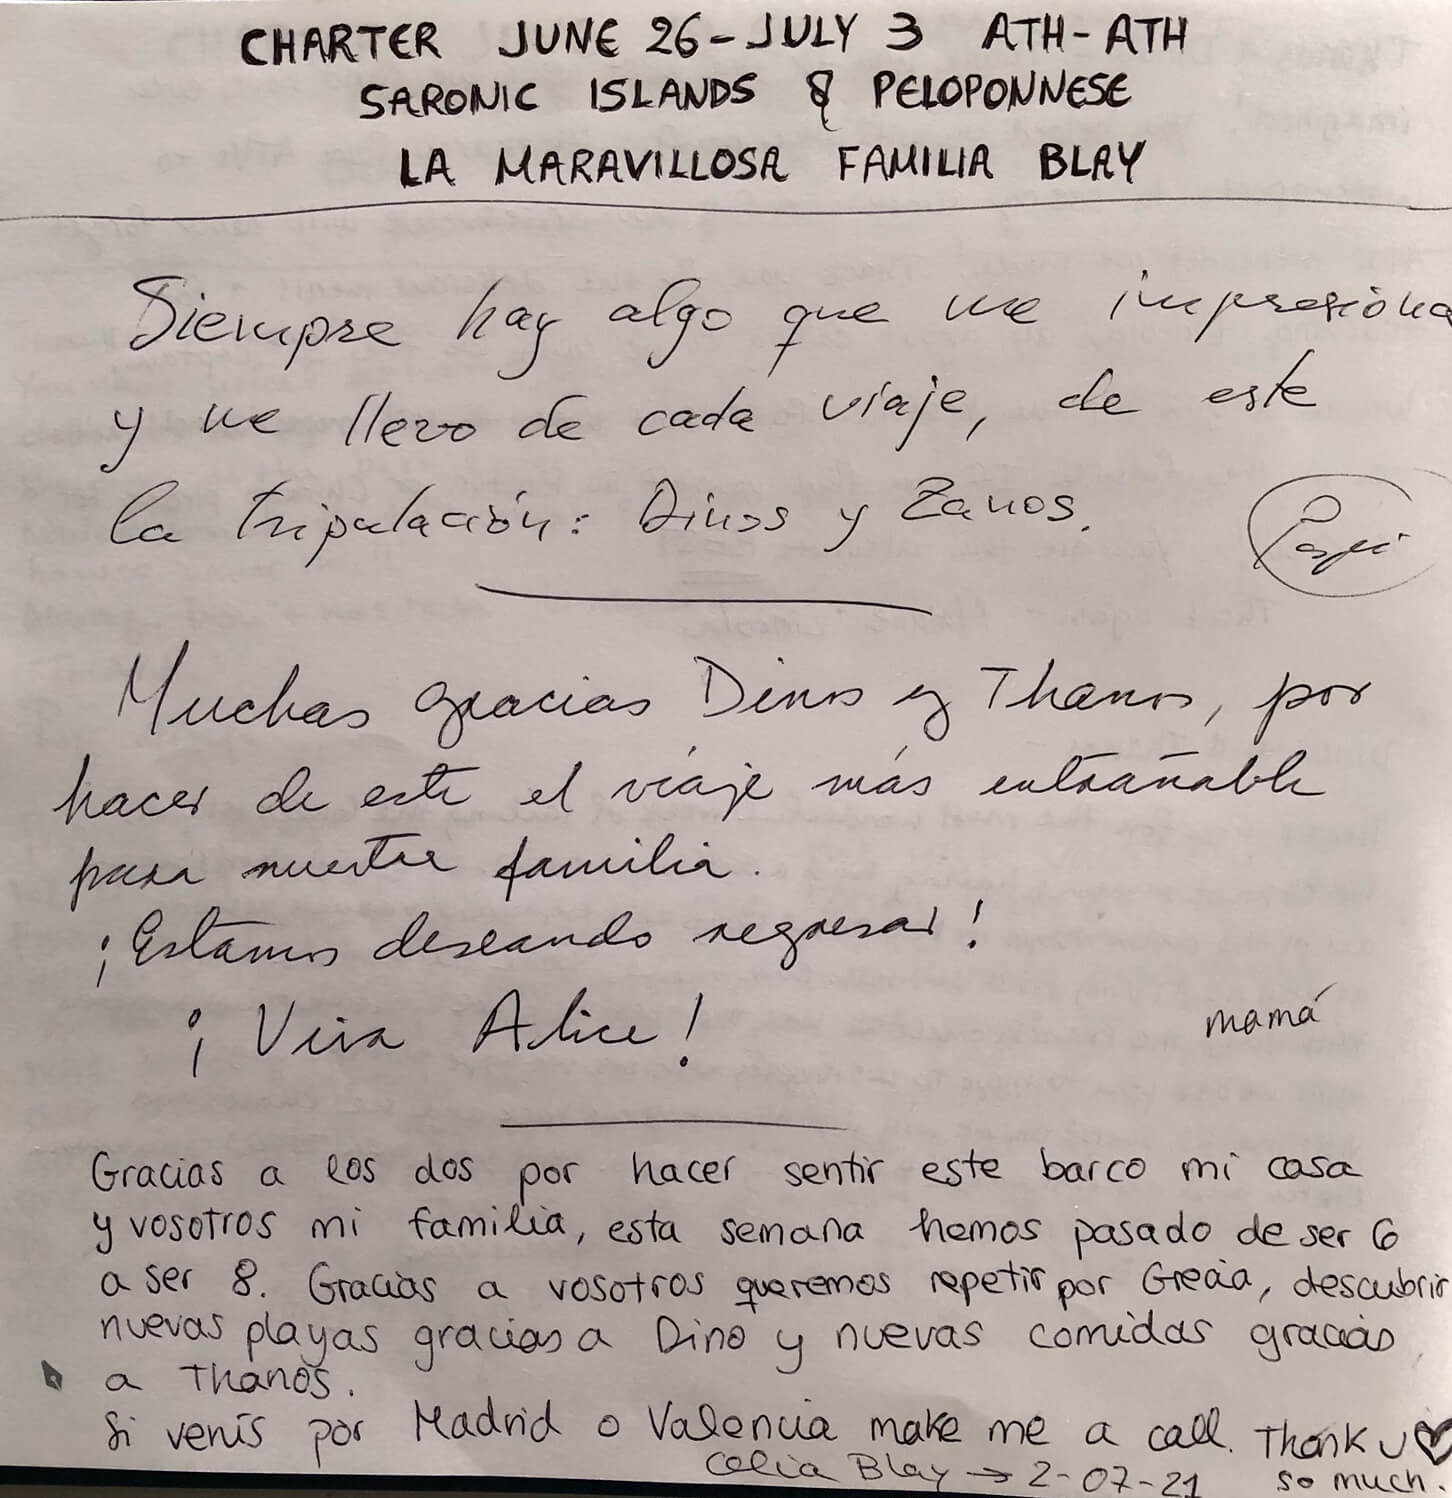 CHARTER JUNE 26-JULY 3 ATH-ATH
SARONIC ISLANDS & PELOPONNESE
LA MARAVILLOSA FAMILIA BLAY
Siempre hay algo que me impresiona
y me llevo de cada viaje, de este
la tripulación: Dinos y Zanos.
Muchas gracias Dinos y Thanos, por
hacer de este el viaje más entrañable
para nuestra familia.
¡Estamos deseando regresar!
¡Viva Alice!
mamá
Gracias a los dos por hacer sentir este barco mi casa
y vosotros mi familia, esta semana hemos pasado de ser 6
a ser 8. Gracias a vosotros queremos repetir por Grecia, descubrir
nuevas playas gracias a Dino y nuevas comidas gracias
a Thanos.
Si venís por Madrid o Valencia make me a call. Thank U ♡
so much.
Celia Blay → 2-07-21